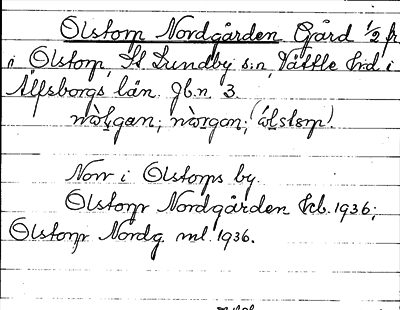 Olstorp Nordgården Gård 1/2 fr
i Olstorp, St Lundby s:n, Vättle hd i
Älfsborgs län. Jb.n 3.
Norr i Olstorps by.
Olstorp Nordgården kb. 1936;
Olstorp Nordg. ml. 1936.